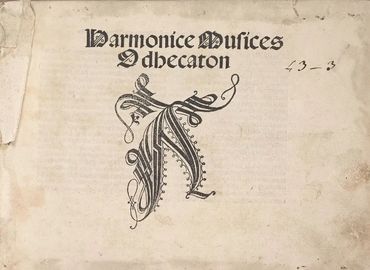 Harmonice Musices
Odhecaton
43-3
A